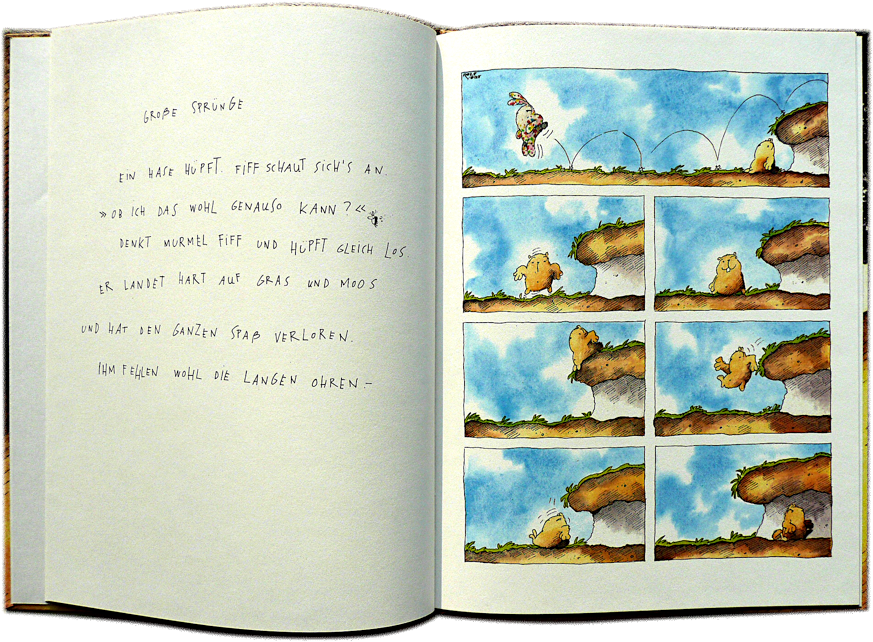 GROßE SPRÜNGE
EIN HASE HÜPFT. FIFF SCHAUT SICH'S AN.
»OB ICH DAS WOHL GENAUSO KANN?«
DENKT MURMEL FIFF UND HÜPFT GLEICH LOS.
ER LANDET HART AUF GRAS UND MOOS
UND HAT DEN GANZEN SPAß VERLOREN.
IHM FEHLEN WOHL DIE LANGEN OHREN –